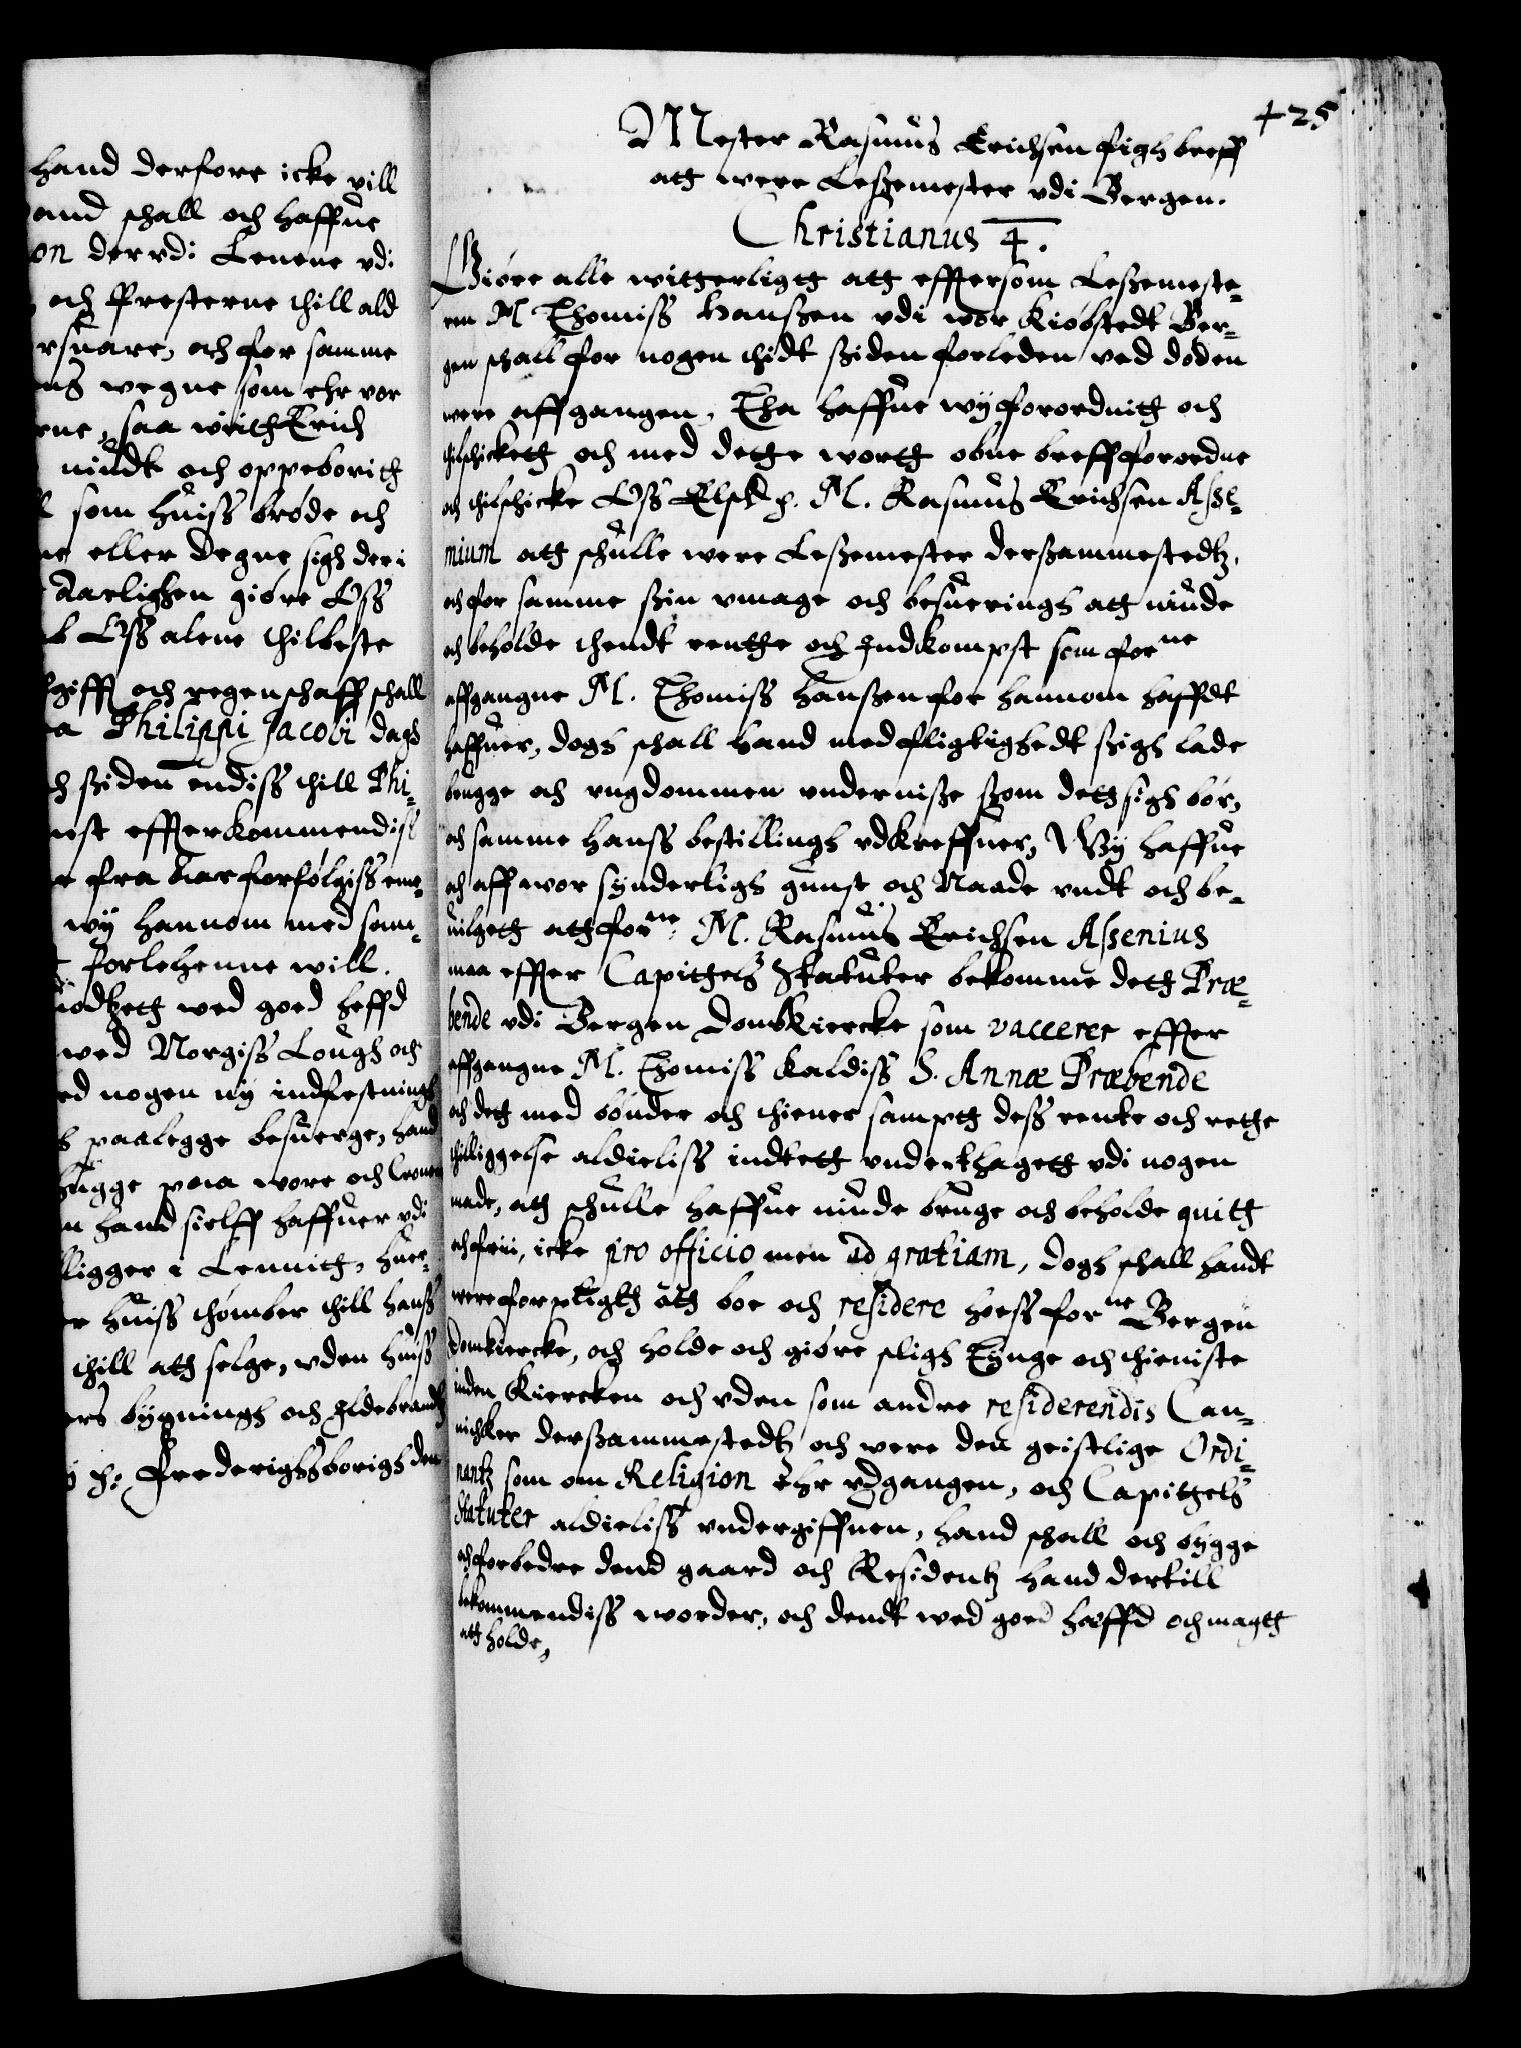 hand derfore icke vill
and schall och haffue
on der vdi Lenene vdi
och Presterne thill ald
rsuare, och for samme
ns wegne som ehr vor
rne, saa with Erich
niudt och oppeborith
l som huiss brøde och
ne eller degne sigh der i
daarlighen giøre Oss
b Oss alene thilbeste
giff och regenschaff schall
a Philippi Jacobi dagh
h ssiden endiss thill Phi-
nst effterkommendiss
r fra Aar forfølgiss eme-
wij hannom med sam-
forlehenne will.
ved goed heffd
wed Norgiss Lough och
ed nogen ny indfestningh
h paalegge besuerge, hand
hugge paa wore och Cronen
n hand sielff haffuer vdi
ligger i Lennith, huer-
r huiss thømber thill hanss
thill ath selge, vden huiss
ers bygningh och Ildebrandtz
h: Frederigssborigh den
425
Mester Rasmus Erichsen figh breff
att were Leszemester vdi Bergen.
Christianus 4.
Giøre alle witterligtt att efftersom Leszemeste-
ren M Thomiss Hanszen vdi wor Kiøbstedt Ber-
gen schall for nogen thidt sziden forleden ved døden
were affgangen, Tha haffue wij forordnith och
thilschicketh och med dethe worth obne breff forordne
och thilschicke Oss Elsk. h. M. Rasmus Erichsen Asse-
nium ath schulle were Leszemester derszammestedtz,
och for samme szin vmage och besueringh att niude
och beholde thendt renthe och Indkompst som forne
affgangne M. Thomiss Hanszen for hannom hafft
haffuer, dogh schall hand med fligtighedt szigh lade
brugge och vngdommen vnderuisze szom deth sigh bør,
och samme hanss bestillingh vdkreffuer, Wij haffue
och aff wor synderligh gunst och Naade vndt och be-
uilgeth ath forne. M. Rasmus Erichsen Assenius
maa effter Capittels Statuter bekomme deth Præ-
bende vdi Bergen Domkiercke som vaccerer effter
affgangne M. Thomiss kaldiss S. Annæ Præbende
och dett med bønder och thiener sampt dess rente och rethe
thilliggelse aldieliss indtett vnderthagett vdi nogen
made, ath schulle haffue niude bruge och beholde quith
och frii, icke pro officio men ad gratiam, dogh schall handt
were forpligth ath boe och residere hoess forne Bergen
Domkiercke, och holde och giøre sligh Tynge och thieniste
inden Kiercken och vden som andre residerendis Can-
nicker derszammestedtz och were den geistlige Ordi-
nantz som om Religion ehr vdgangen, och Capittels
Statuter aldieliss vndergiffuen, hand schall och bygge
och forbedre dend gaard och Residentz hand dertill
bekommendiss worder, och dendt wed goed hæffd och magtt
att holde,